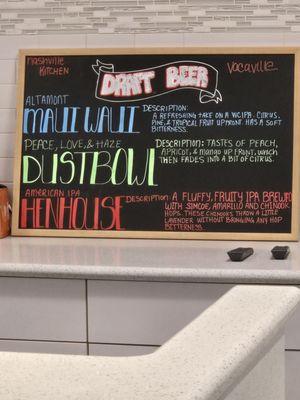 Nashville
Kitchen
DRAFT BEER
Vacaville
ALTAMONT
MAUI WAUI
DESCRIPTION:
A REFRESHING TAKE ON A WC IPA. CITRUS,
PINE & TROPICAL FRUIT UPFRONT. HAS A SOFT
BITTERNESS.
PEACE, LOVE, & HAZE
DUSTBOWL
DESCRIPTION: TASTES OF PEACH,
APRICOT, & MANGO UP FRONT, WHICH
THEN FADES INTO A BIT OF CITRUS.
AMERICAN IPA
HENHOUSE
DESCRIPTION: A FLUFFY, FRUITY IPA BREWED
WITH SIMCOE, AMARILLO AND CHINOOK
HOPS. THESE CHINOOKS THROW A LITTLE
LAVENDER WITHOUT BRINGING ANY HOP
BITTERNESS.